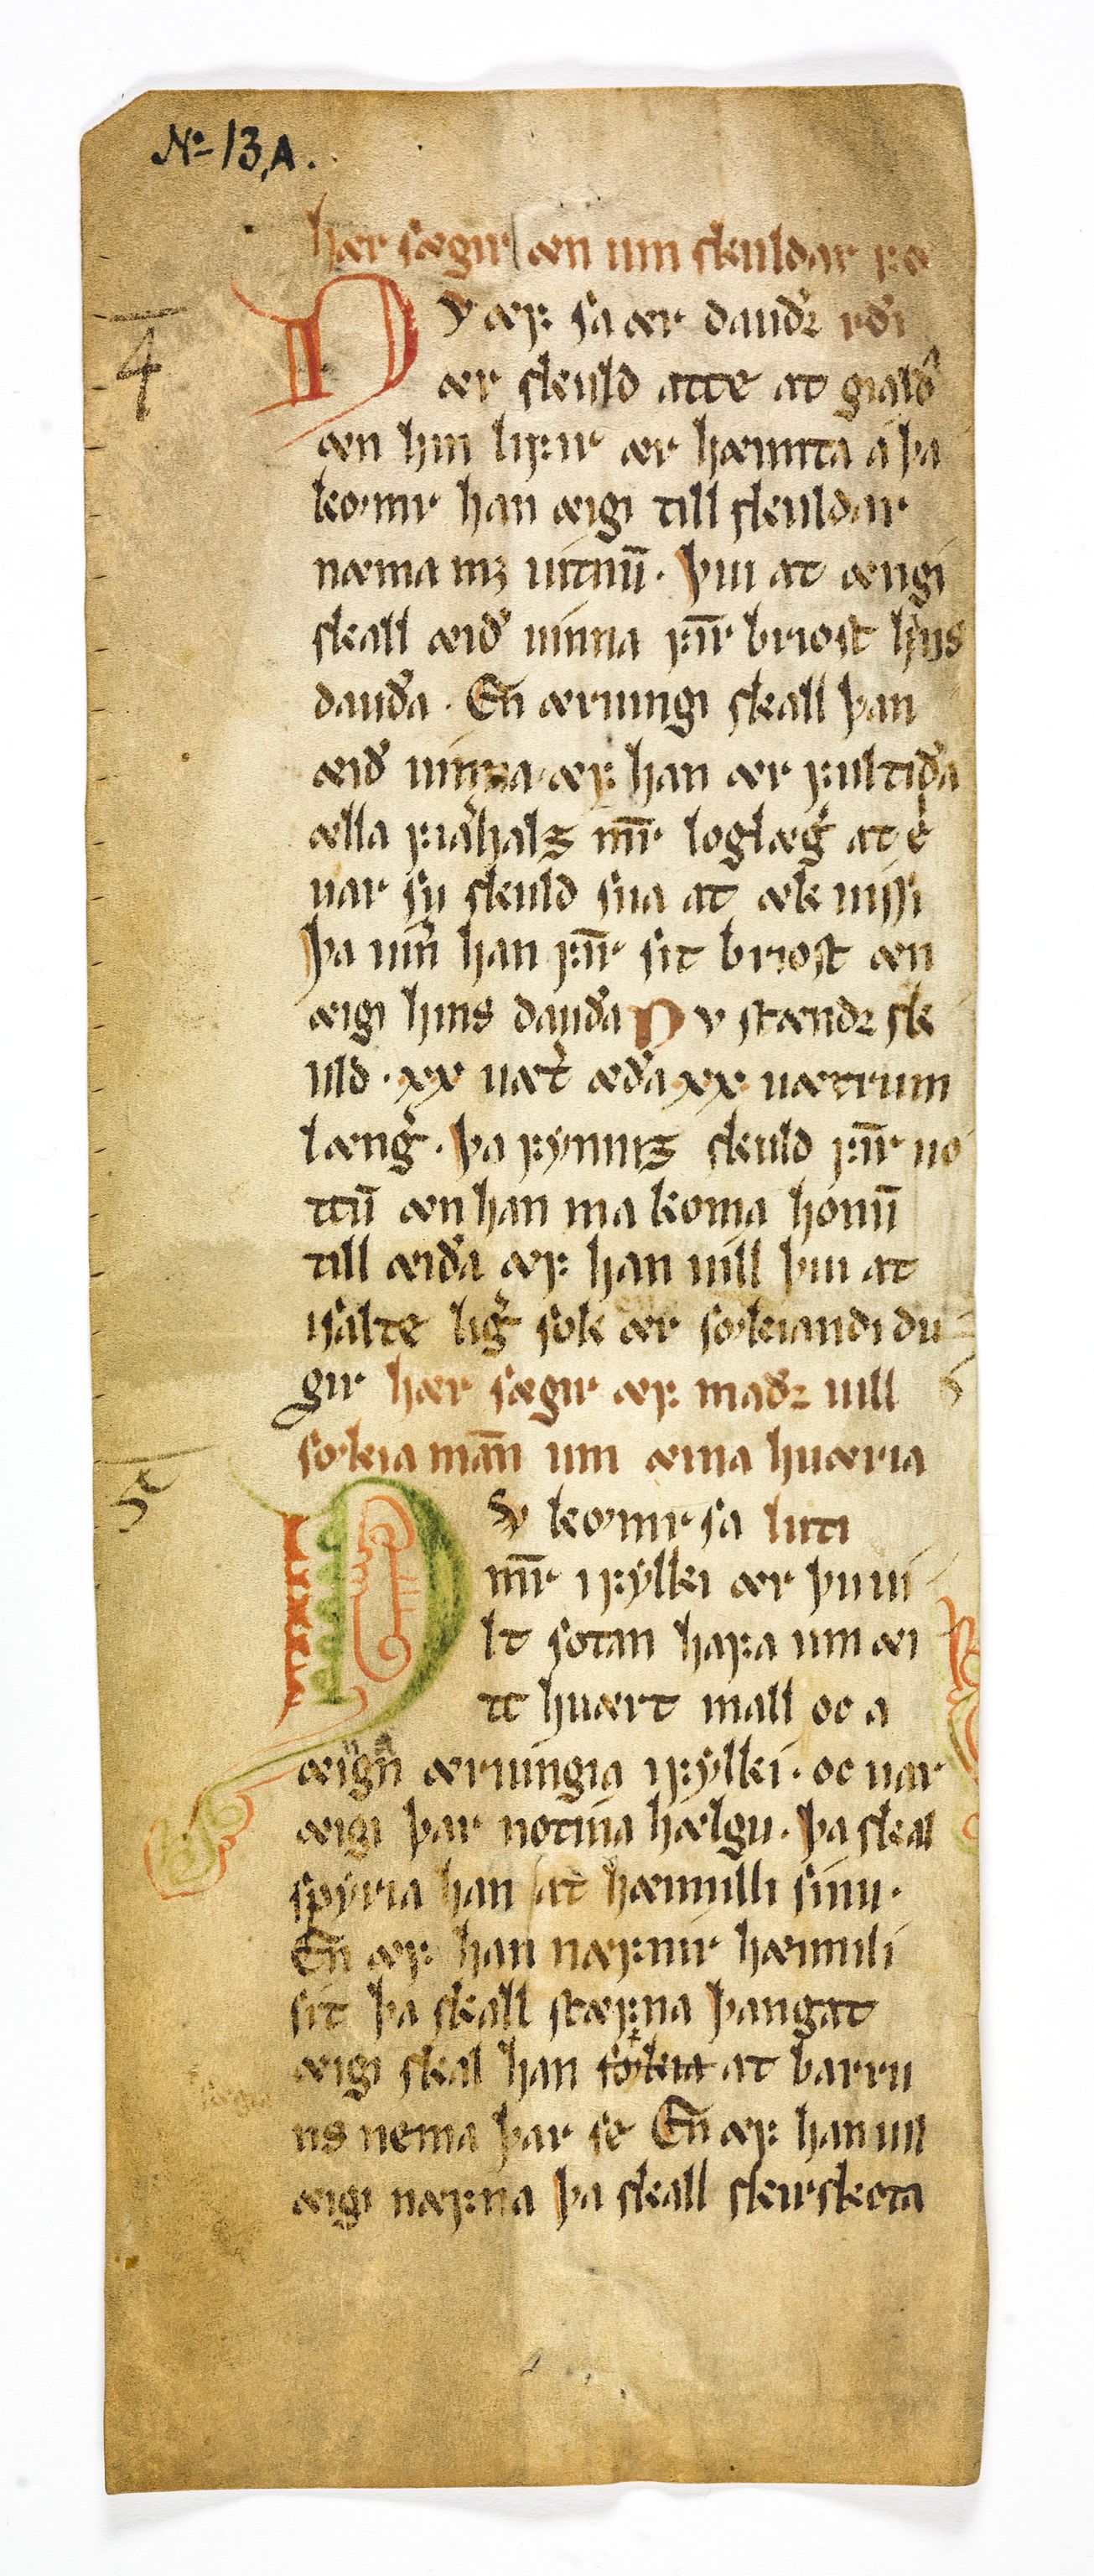 No 13,A.
hær sægir æn um skuldar fæ
4
Nv æf sa ær dauðꝛ rði
ær skuld atte at giald
æn hin lifir ær hæimta a þa
kømr han æigi till skuldar
næma mꝫ uitnū. þui at ængi
skall æið uinna firir briost hins
dauða. En̄ æruingi skall þan
æið uinna. æf han ær fultiða
ælla fialhals mr̄ loglæg at e
uar su skuld sua at æk uissi
þa uin̄ han fir̄ sit briost æn
æigi hins dauða Nv stændꝛ sk
uld. xx uæt æða xx uætrum
læng. þa fynnis skuld fir̄ uo
ttū æn han ma koma honū
till æiða æf han uill þui at
isalte lig sok ær sökiandi du
gir hær sægir æf maðꝛ uill
sökia man̄ um æina huæria
5
Nv kømir sa luti
mr̄ ifylki ær þyui
lt sotan hafa um æi
tt huært mall oc a
æign̄ æruingia ifylki. oc uar
æigi þar notuia hælgu. þa skal
spyria han at hæimilli sinu.
En̄ æf han næfnir hæimili
sit þa skall stæfna þangat
æigi skal han sökia at barru
ns nema þar se En̄ æf han uill
æigi næfna þa skall skirskota